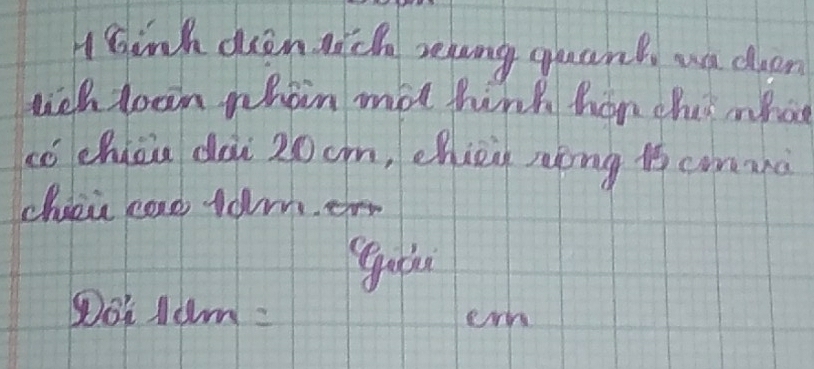 1 Tính diện tích xung quanh và diện
tích toàn phần một hình hộp chữ nhật
có chiều dài 20 cm, chiều rộng 15 cm và
chiều cao 1dm. cm
Giải
Đổi 1dm = cm